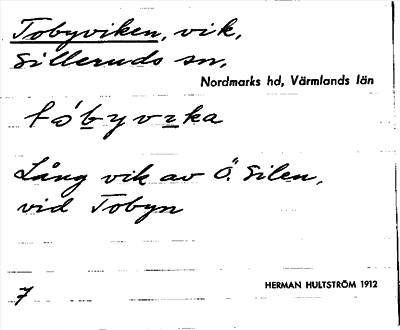 Tobyviken, vik,
Silleruds sn,
Nordmarks hd, Värmlands län
Lång vik av Ö. Silen,
vid Tobyn
7
HERMAN HULTSTRÖM 1912